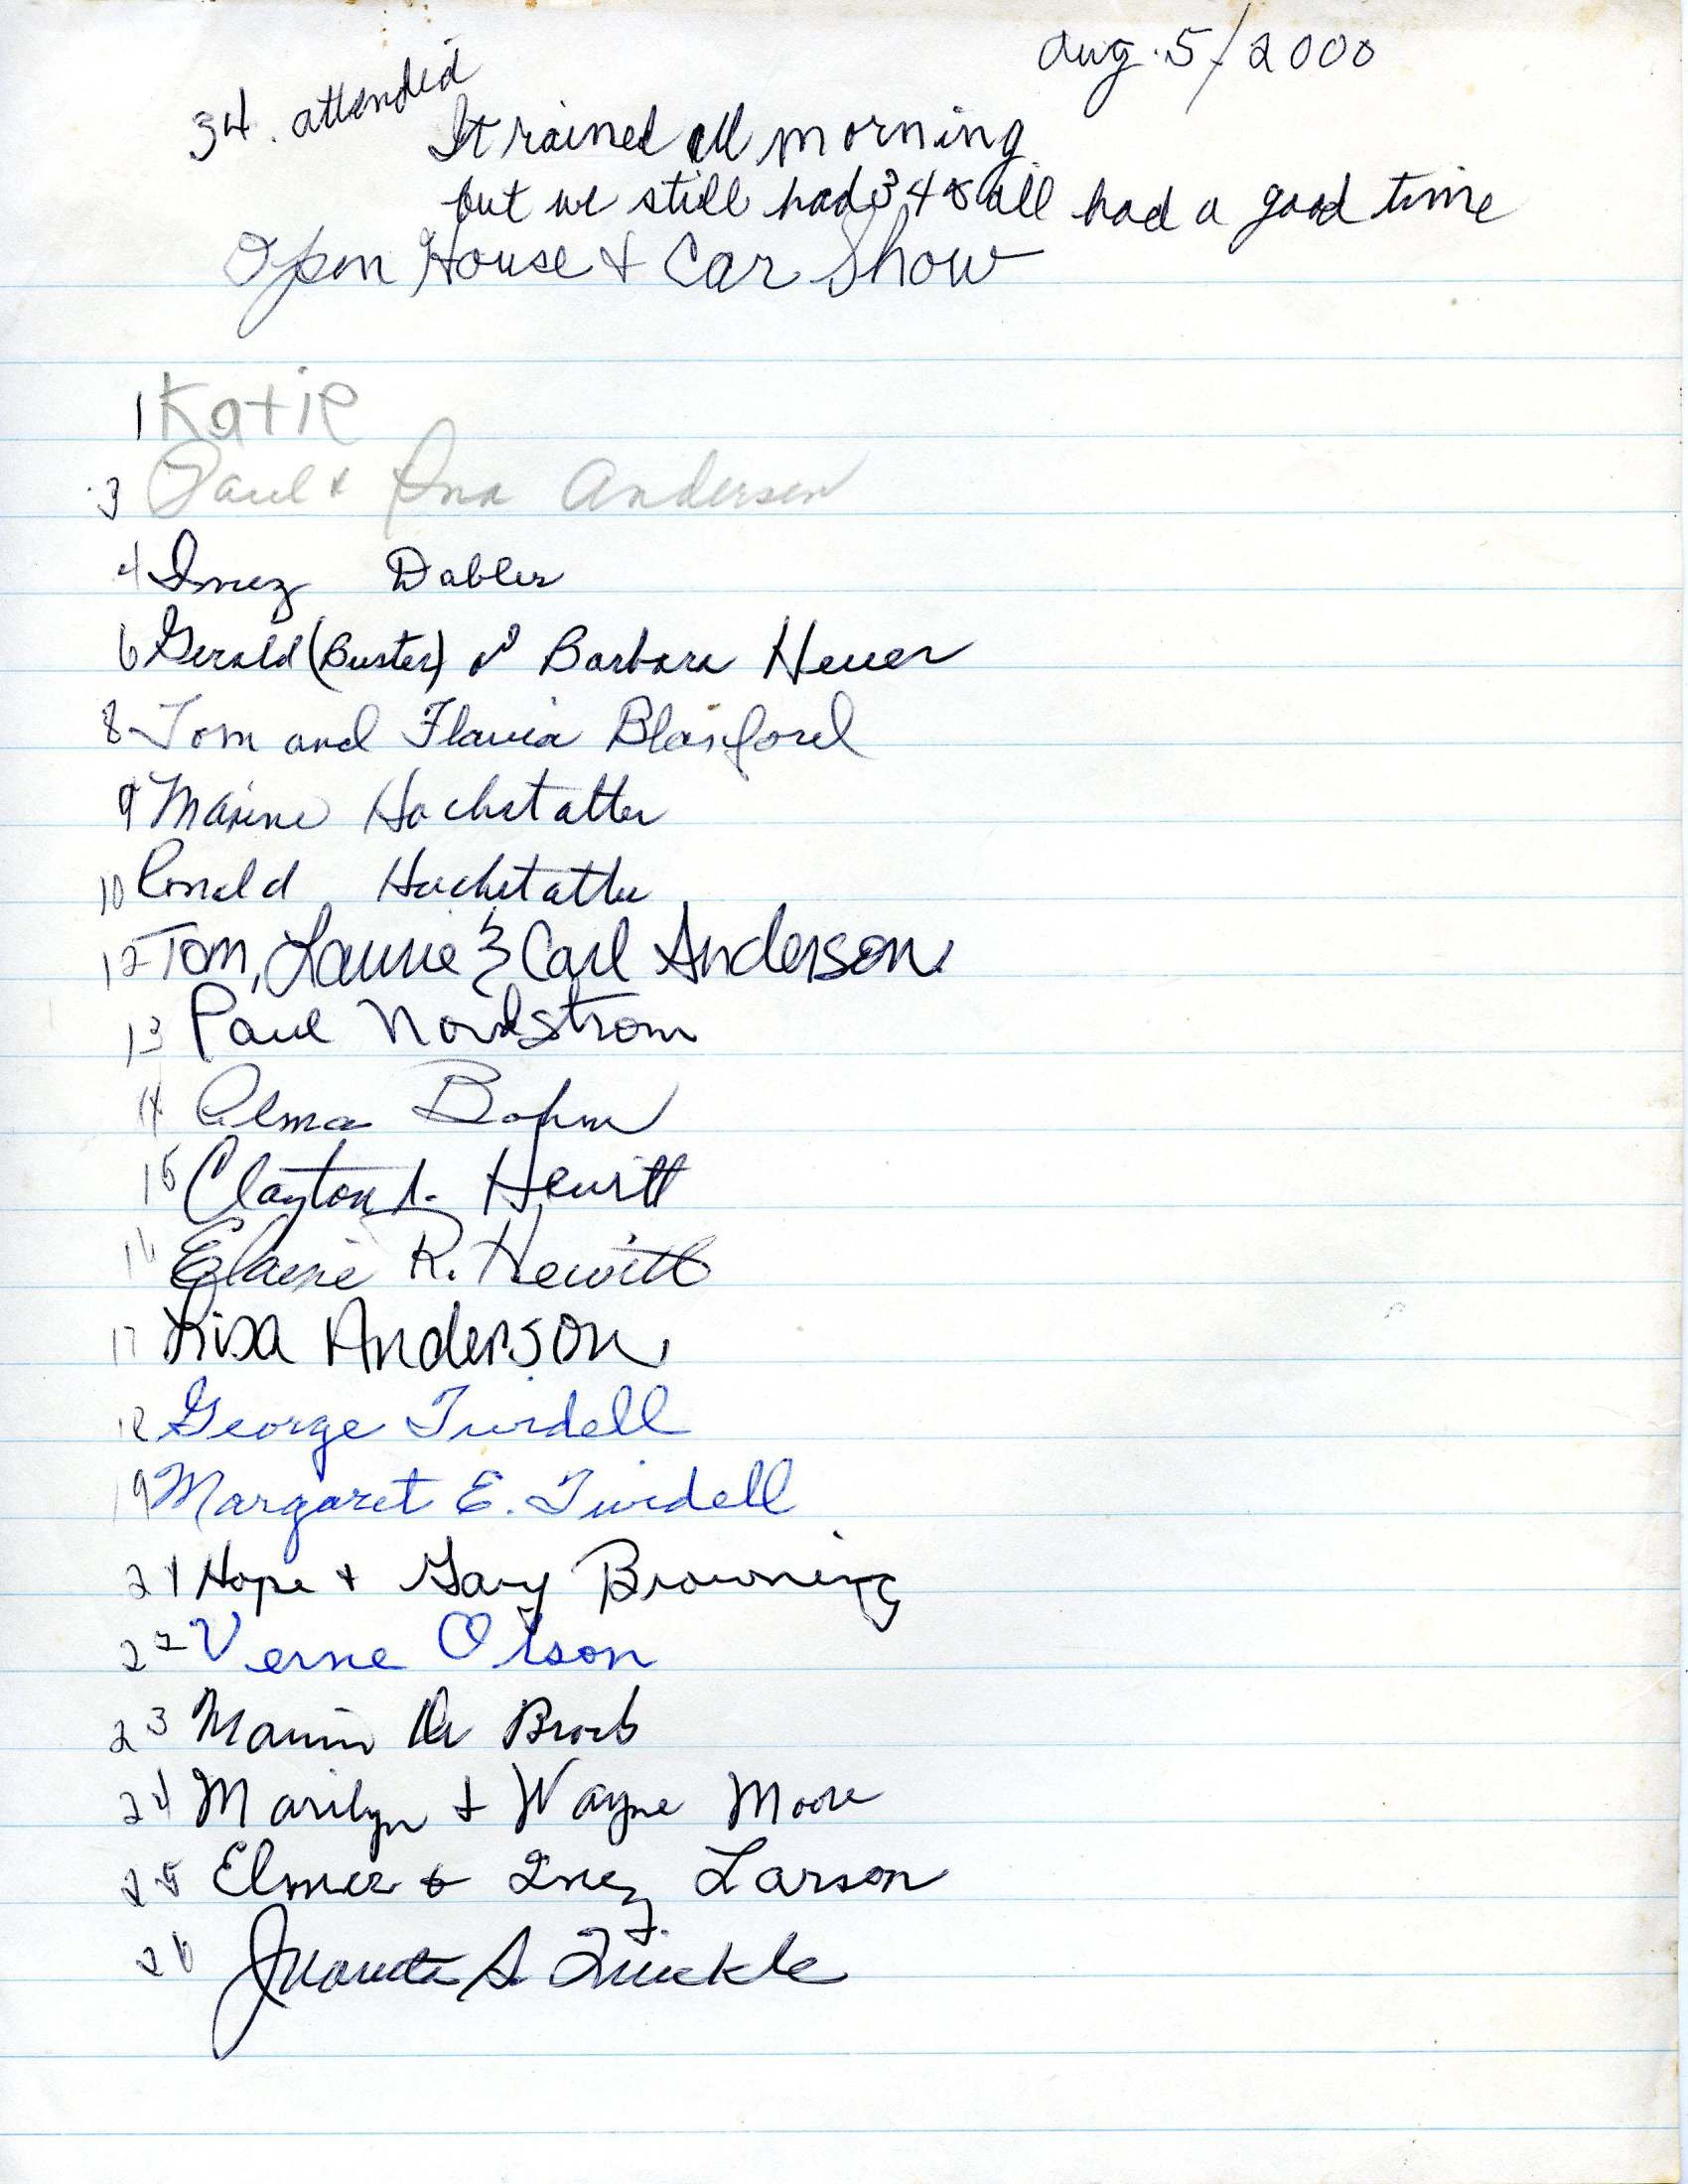 Aug. 5/2000
34. attended
It rained all morning
but we still had 34 & all had a good time
Open House & Car Show
1 Katie
3 Paul & Ina Andersen
4 Inez Dabler
6 Gerald (Buster) & Barbara Heuer
8 Tom and Flavia Blanford
9 Maxine Hochstatter
10 Ronald Hochstatter
12 Tom, Laurie & Carl Anderson
13 Paul Nordstrom
14 Alma Bohm
15 Clayton L. Hewitt
16 Elaine R. Hewitt
17 Lisa Anderson
18 George Twidell
19 Margaret E. Twidell
21 Hope & Gary Browning
22 Verne Olson
23 De
24 Marilyn & Wayne Moore
25 Elmer & Inez Larson
26 Juanita